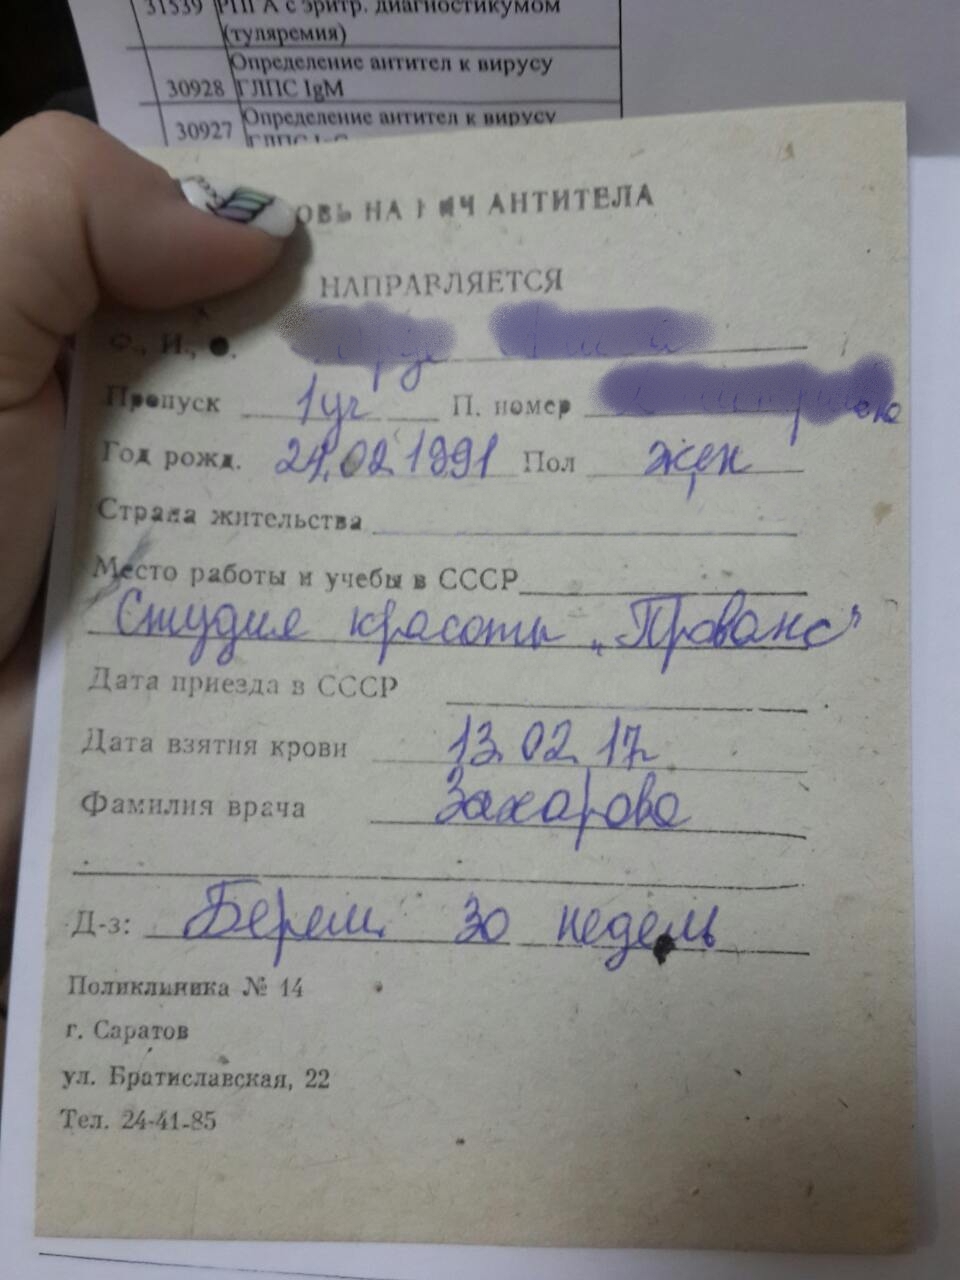 31539 РПГА с эритр. диагностикумом
(туляремия)
Определение антител к вирусу
30928 ГЛПС IgM
30927 Определение антител к вирусу
ГЛПС IgG
НА АНТИТЕЛА
НАПРАВЛЯЕТСЯ
Ф., И., О.
Пропуск 1уч П. номер
Год рожд. 24.02.1991 Пол жен
Страна жительства
Место работы и учебы в СССР
Студия красоты „Прованс"
Дата приезда в СССР
Дата взятия крови 13.02.17г
Фамилия врача Захарова
Д-з: Берем. 30 недель
Поликлиника № 14
г. Саратов
ул. Братиславская, 22
Тел. 24-41-85